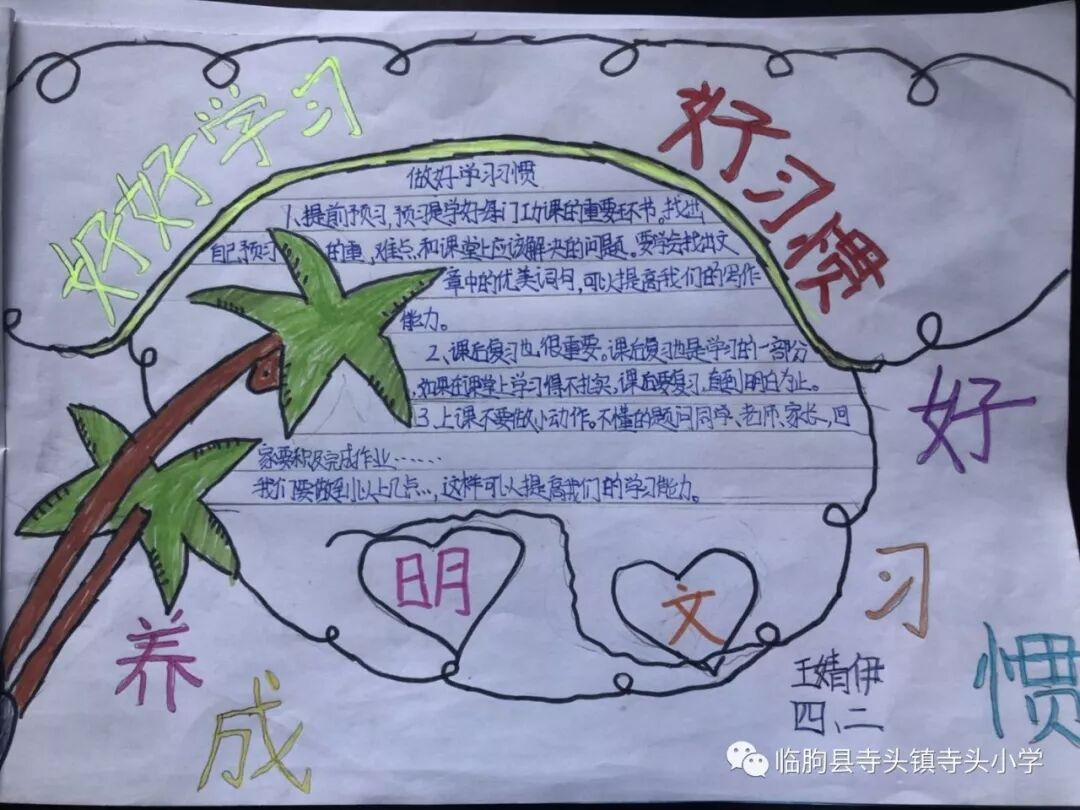 好好学习
好习惯
做好学习习惯
1、提前预习,预习是学好每门功课的重要环节。找出
自己预习的重、难点和课堂上应该解决的问题。要学会找出文
章中的优美词句,可以提高我们的写作
能力。
2、课后复习也很重要。课后复习也是学习的一部分
,如果在课堂上学习得不扎实,课后要复习,直到明白为止。
3、上课不要做小动作。不懂的题问同学、老师、家长,回
家要积及完成作业……
我们要做到以上几点…,这样可以提高我们的学习能力。
明
文
养
成
好
习
惯
王婧伊
四、二
临朐县寺头镇寺头小学